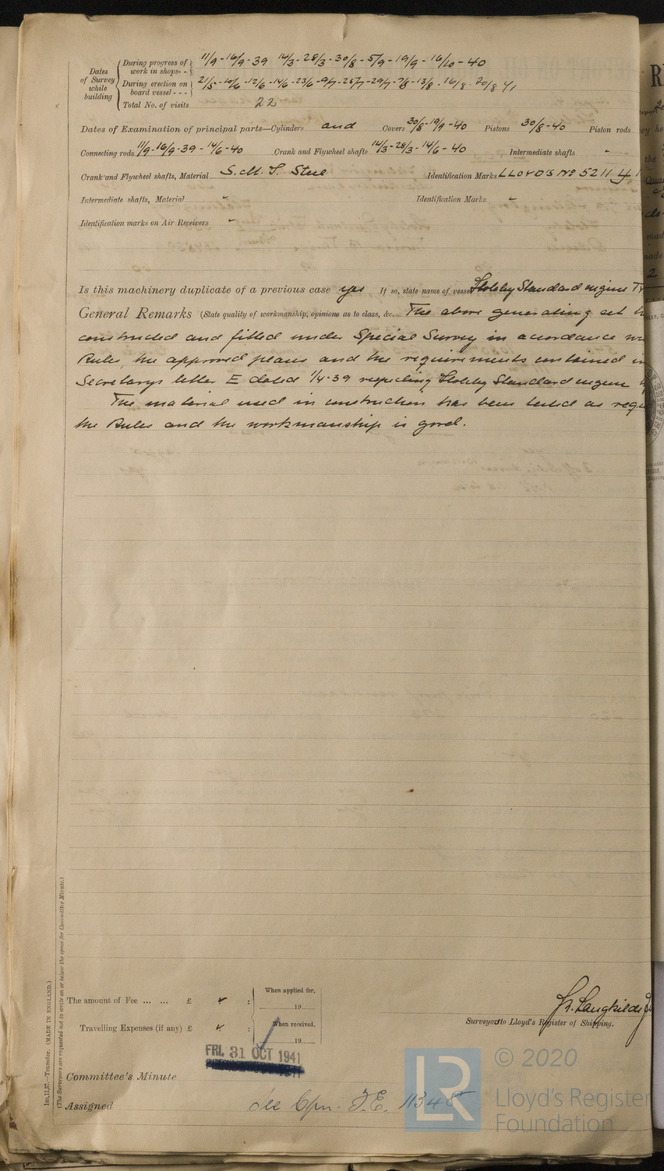 Dates of Survey while building
During progress of work in shops - - 11/9-16/9-39 14/3-28/3-30/8-5/9-19/9-16/10-40
During erection on board vessel - - - 21/5-10/6-12/6-14/6-23/6-9/7-28/7-29/7-7/8-13/8-16/8-20/8 41
Total No. of visits 22
Dates of Examination of principal parts—Cylinders and Covers 30/8-19/9-40 Pistons 30/8-40 Piston rods
Connecting rods 11/9-16/9-39-14/6-40 Crank and Flywheel shafts 14/3-28/3-14/6-40 Intermediate shafts -
Crank and Flywheel shafts, Material S.M.I. Steel Identification Marks LLOYDS No 5211 4
Intermediate shafts, Material - Identification Marks -
Identification marks on Air Receivers -
Is this machinery duplicate of a previous case yes If so, state name of vessel Holeby Standard engine
General Remarks (State quality of workmanship, opinions as to class, &c. The above generating set
constructed and fitted under Special Survey in accordance
Rules, the approved plans and the requirements contained
Secretarys letter E dated 1/4-39 regarding Holeby Standard engine
The material used in construction has been tested as
the Rules and the workmanship is good.
The amount of Fee ... ... £ :
When applied for,
19
Travelling Expenses (if any) £ :
When received,
19
Surveyor to Lloyd's Register of Shipping.
FRI. 31 OCT 1941
Committee's Minute
Assigned See Cpn. F.E. 11348
1m,11,37.—Transfer. (MADE IN ENGLAND.)
(The Surveyors are requested not to write on or below the space for Committee Minute.)
© 2020
LR
Lloyd's Register
Foundation